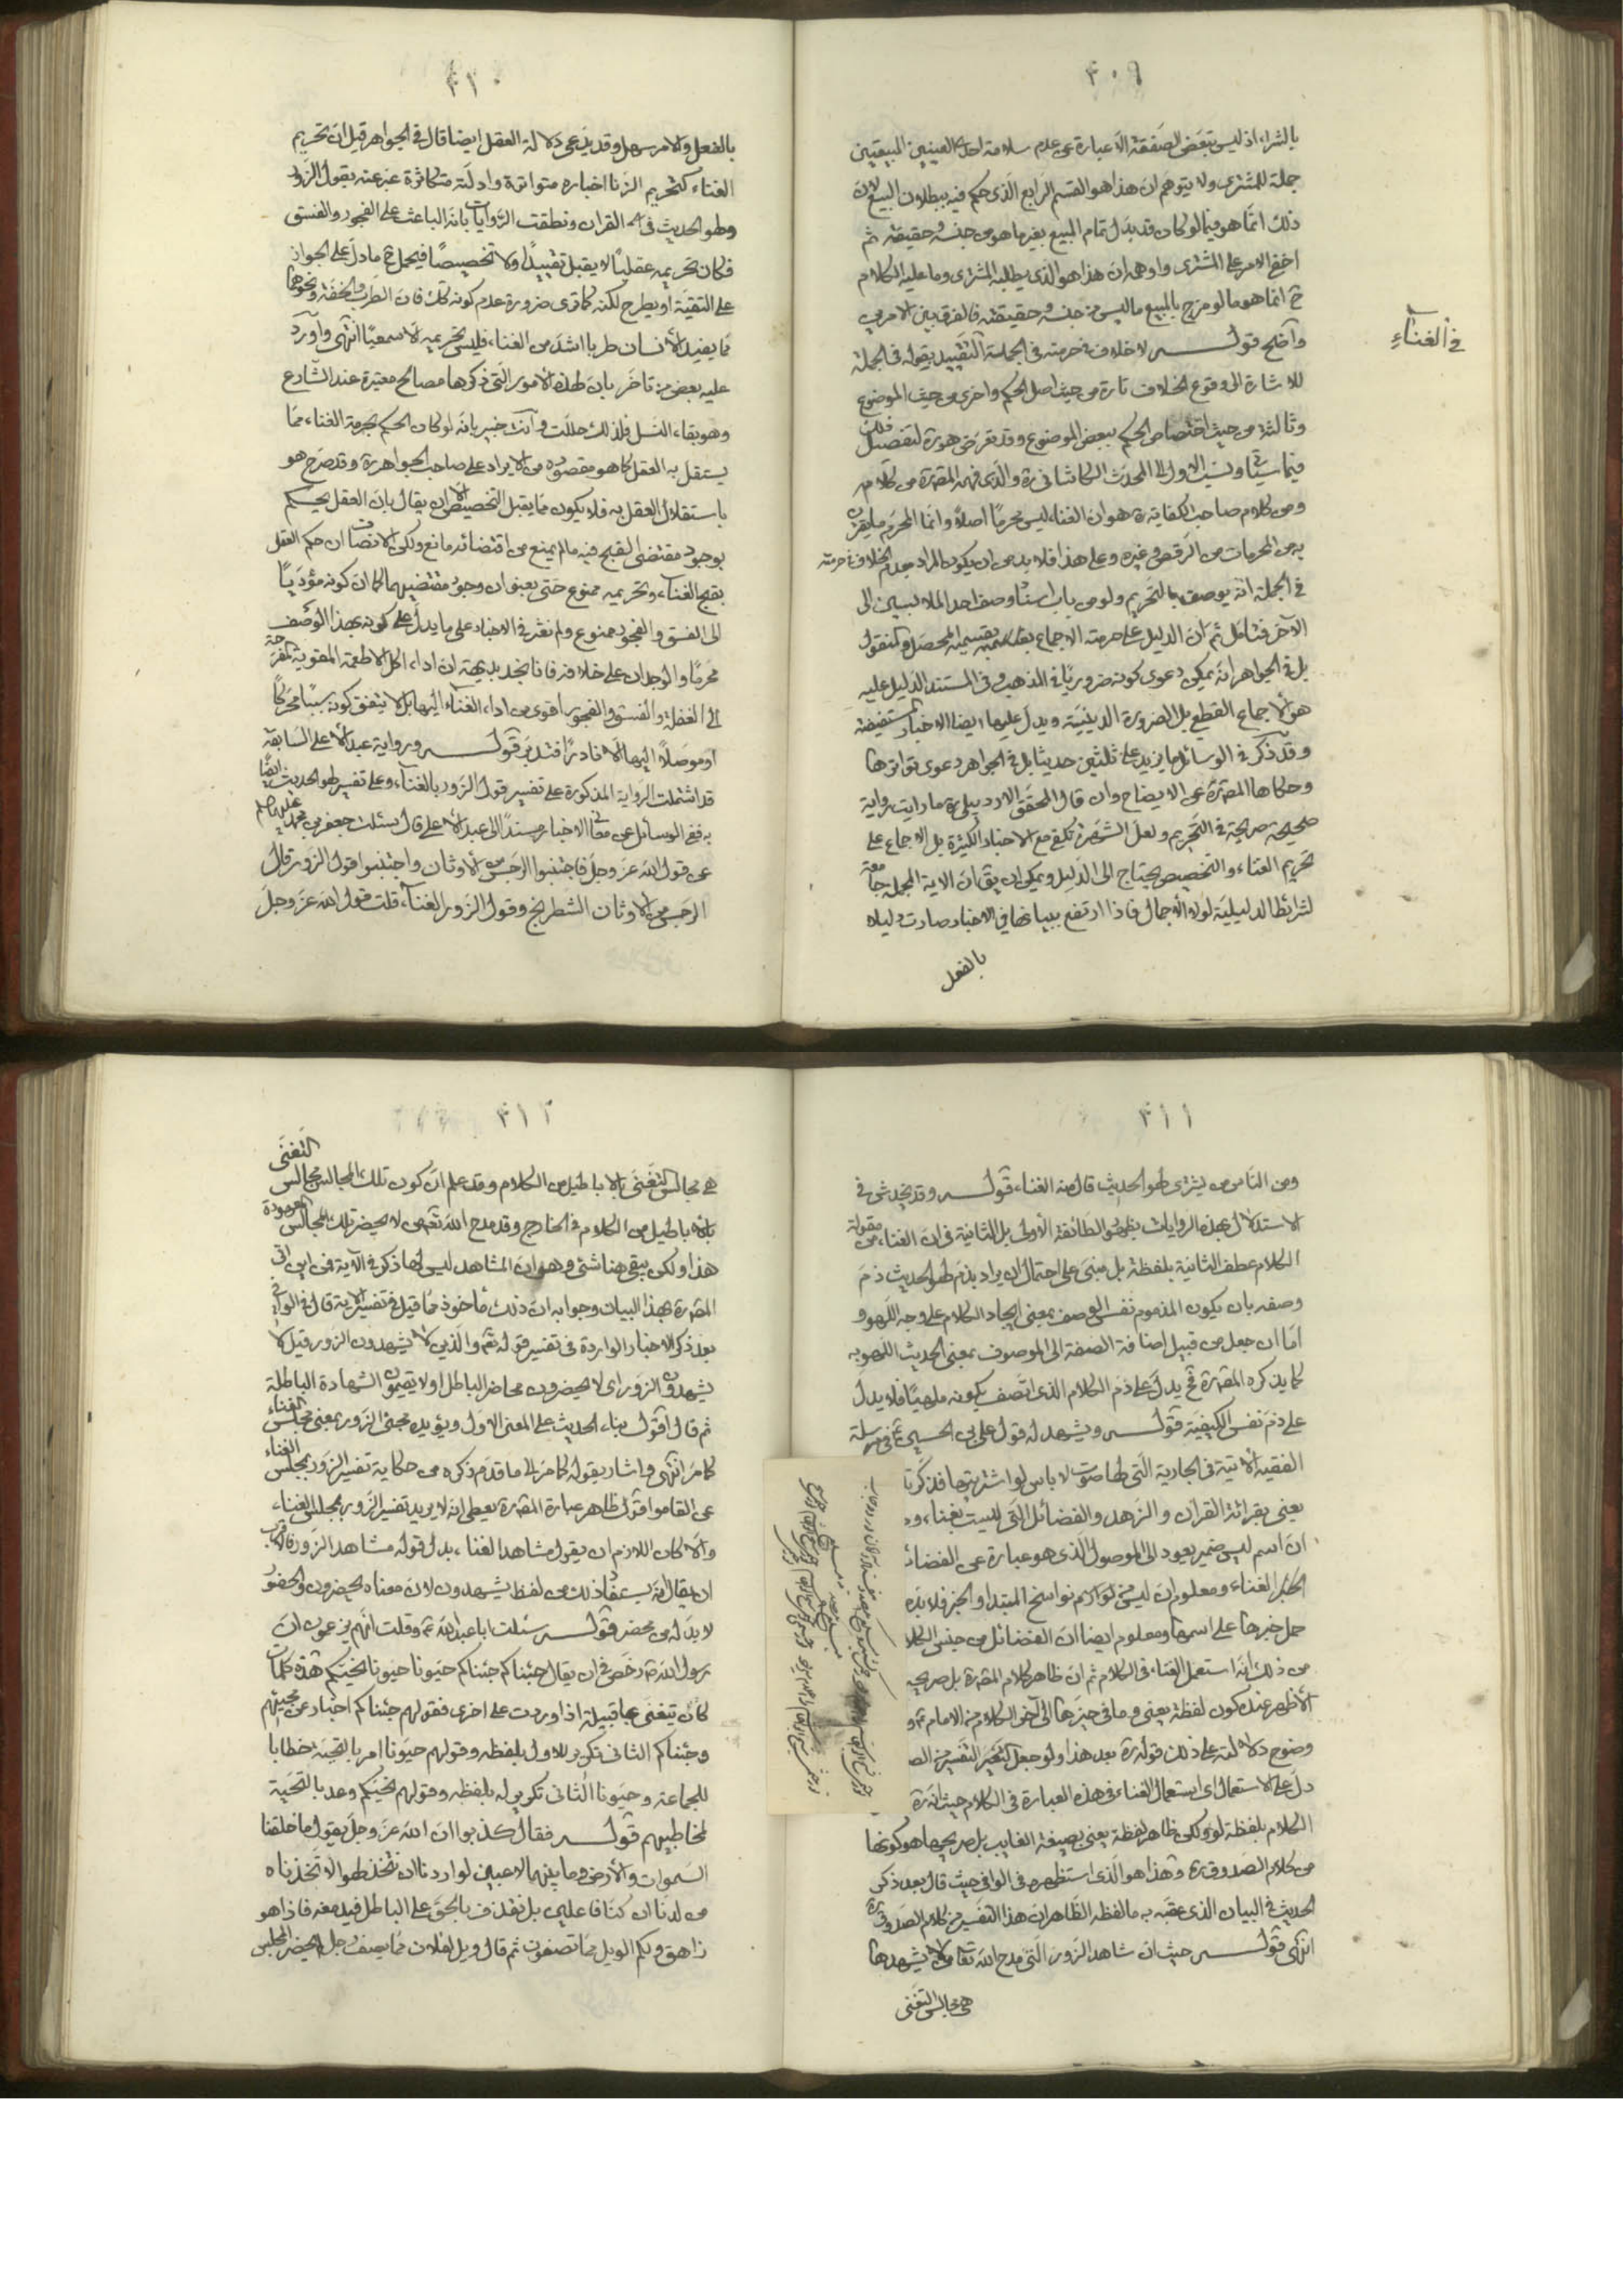 ٣٠٩
بالشراء اذ ليس تبعّض الصفقة الّا عبارة عن عدم سلامة احد العينين المبيعتين
جملة للمشترى ولا يتوهم انّ هذا هو القسم الرابع الذى حكم فيه ببطلان البيع لان
ذلك انّما هو فيما لو كان قد بدل تمام المبيع بغير ما هو من جنسه و حقيقته ثم
اخفى الامر على المشترى واوهمه انّ هذا هو الذى يطلبه المشترى وما عليه الكلام
ح انما هو ما لو مزج بالمبيع ما ليس من جنسه و حقيقته فالفرق بين الامرين
فى الغناء
واضح قوله لا خلاف فى حرمته فى الجملة التقييد بقوله فى الجملة
للاشارة الى وقوع الخلاف تارة من حيث اصل الحكم واخرى من حيث الموضوع
وثالثة من حيث اختصاص الحكم ببعض الموضوع وقد تعرّض هو ره لتفصيل ذلك
فيما سياتى ونسب الاول الى المحدث الكاشانى ره والذى فهمه المصره من كلامه
ومن كلام صاحب الكفاية ره هو ان الغناء ليس محرمًا اصلاً وانما المحرم ما يقترن
به من المحرمات من الرقص و غيره وعلى هذا فلا بد من ان يكون المراد بعدم الخلاف فى حرمته
فى الجملة انّه يوصف بالتحريم ولو من باب اسناد وصف احد الملابسين الى
الآخر فتامل ثم انّ الدليل على حرمته الاجماع بقسميه المحصل والمنقول
بل فى الجواهر انّه يمكن دعوى كونه ضروريّا فى المذهب و فى المستند الدليل عليه
هو الاجماع القطعى بل الضرورة الدينيّة ويدل عليها ايضا الاخبار المستفيضة
وقد ذكر فى الوسائل ما يزيد على ثلثين حديثا بل فى الجواهر دعوى تواترها
وحكاها المصره عن الايضاح وان قال المحقق الاردبيلى ره ما رايت رواية
صحيحة صريحة فى التحريم ولعل الشهرة تكفى مع الاخبار الكثيرة بل الاجماع على
تحريم الغناء والتخصيص يحتاج الى الدليل ويمكن ان يق ان الاية المجملة جامعة
لشرائط الدليلية لولا الاجمال فاذا ارتفع ببيانها فى الاخبار صارت دليلا
بالفعل
٣١٠
بالفعل والامر سهل وقد يدّعى دلالة العقل ايضا قال فى الجواهر قيل انّ تحريم
الغناء كتحريم الزنا اخباره متواترة وادلته متكاثرة عبّر عنه بقول الزور
ولهو الحديث فى القران ونطقت الروايات بانّه الباعث على الفجور والفسق
فكان تحريمه عقليّا لا يقبل تقييدًا ولا تخصيصًا فيحمل ح ما دل على الجواز
على التقية او يطرح لكنه كما ترى ضرورة عدم كونه كك فان الطرب والخفة ونحوهما
مما يفيد الانسان طربا اشد من الغناء، فليس تحريمه الّا سمعيًا انتهى واورد
عليه بعض من تاخر بانّ لهذه الامور التى ذكرها مصالح معتبرة عند الشارع
وهو بقاء النسل فلذلك حللت وانت خبير بانه لو كان الحكم بحرمة الغناء، مما
يستقل به العقل كما هو مقصوده من الايراد على صاحب الجواهر ره وقد صرّح هو
باستقلال العقل به فلا يكون مما يقبل التخصيص الّا ان يقال بان العقل يحكم
بوجود مقتضى القبح فيه ما لم يمنع من اقتضائه مانع ولكن الانصاف ان حكم العقل
بقبح الغناء، وتحريمه ممنوع حتى بعنوان وجود مقتضيهما لما ان كونه مؤديّا
الى الفسق والفجور ممنوع ولم نعثر فى الاخبار على ما يدل على كونه بهذا الوصف
محرمًا والوجدان على خلافه فانا نجد بديهة ان اداء، اكل الاطعمة المقوية المفرحة
الى الغفلة والفسق والفجور اقوى من اداء، الغناء اليها بل لا يتفق كونه سببًا محركًا
او موصلًا اليها الّا نادرًا فتدبر قوله ورواية عبد الاعلى السابقة
قد اشتملت الرواية المذكورة على تفسير قول الزور بالغناء، وعلى تفسير لهو الحديث ايضًا
به ففى الوسائل عن معانى الاخبار مسندًا الى عبد الاعلى قال سئلت جعفر بن محمد عليهما السلام
عن قول الله عز وجل فاجتنبوا الرجس من الاوثان واجتنبوا قول الزور قال
الرجس من الاوثان الشطرنج وقول الزور الغناء، قلت قول الله عز وجل
٣١١
ومن الناس من يشترى لهو الحديث قال منه الغناء، قوله وقد يخدش فى
الاستدلال بهذه الروايات بظهور الطائفة الاولى بل الثانية فى ان الغناء، من مقولة
الكلام عطف الثانية بلفظة بل مبنى على احتمال ان يراد بذم لهو الحديث ذم
وصفه بان يكون المذموم نفس الوصف بمعنى ايجاد الكلام على وجه اللهو و
امّا ان جعل من قبيل اضافة الصفة الى الموصوف بمعنى الحديث اللهو به
كما يذكره المصره فح يدل على ذم الكلام الذى اتصف بكونه ملهيًا فلا يدل
على ذم نفس الكيفية قوله ويشهد له قول على بن الحسين ع فى مرسلة
الفقيه الاتية فى الجارية التى لها صوت لا باس لو اشتريتها فذكرتك
يعنى بقرائة القران والزهد والفضائل التى ليست بغناء،
ان اسم ليس ضمير يعود الى الموصول الذى هو عبارة عن الفضائل
الخبر الغناء ومعلوم ان ليس من لوازم نواسخ المبتدا و الخبر فلا بد
حمل خبرها على اسمها ومعلوم ايضا ان الفضائل من جنس الكلام
من ذلك انّه استعمل الغناء، فى الكلام ثم ان ظاهر كلام المصره بل صريحه
الاظهر عنده كون لفظة يعنى وما فى حيزها الى آخر الكلام من الامام ع و
وضوح دلالته على ذلك قوله ره بعد هذا ولو جعل التفسير من الص
دل على الاستعمال اى استعمال الغناء، فى هذه العبارة فى الكلام حيث انه ره
الكلام بلفظة لو ولكن ظاهر لفظة يعنى بصيغة الغايب بل صريحها هو كونها
من كلام الصدوق ره وهذا هو الذى استظهره فى الوافى حيث قال بعد ذكر
الحديث فى البيان الذى عقبه به ما لفظه الظاهر ان هذا التفسير من كلام الصدوق ره
انتهى قوله حيث ان مشاهد الزور التى مدح الله تعالى من لا يشهدها
هى مجالس التغنى
٣١٢
هى مجالس التغنى بالاباطيل من الكلام وقد علم ان كون تلك المجالس مجالس التغنى
بالاباطيل من الكلام فى الخارج وقد مدح الله تعالى من لا يحضر تلك المجالس المعهودة
هذا ولكن يبقى هنا شئ وهو ان المشاهد ليس لها ذكر فى الآية فمن اين اتى
المصره بهذا البيان وجوابه ان ذلك مأخوذ مما قيل فى تفسير الاية قال فى الوافى
بعد ذكر الاخبار الواردة فى تفسير قوله تعالى والذين لا يشهدون الزور قيل لا
يشهدون الزور اى لا يحضرون محاضر الباطل او لا يقيمون الشهادة الباطلة
ثم قال اقول بناء الحديث على المعنى الاول ويؤيده مجئ الزور بمعنى مجلس الغناء
كما مرّ انتهى و اشار بقوله كما مر الى ما قدم ذكره من حكاية تفسير الزور بمجلس الغناء
عن القاموس اقول ظاهر عبارة المصره يعطى انه لا يريد تفسير الزور بمجلس الغناء،
والّا كان اللازم ان يقول مشاهد الغناء، بدل قوله مشاهد الزور فالاقرب
ان يقال انّه يستفاد ذلك من لفظ يشهدون لان معناه يحضرون والحضور
لا بد له من محضر قوله سئلت ابا عبد الله ع وقلت انّهم يزعمون ان
رسول الله ص رخص فى ان يقال جئناكم جئناكم حيونا حيونا نحيّكم هذه كلمات
كان يتغنى بها قبيلة اذا وردت على اخرى فقولهم جئناكم اخبار عن مجيئهم
وجئناكم الثانى تكرير للاول بلفظه وقولهم حيونا امر بالتحية خطابا
للجماعة وحيونا الثانى تكرير له بلفظه وقولهم نحيّكم وعد بالتحية
لمخاطبيهم قوله فقال كذبوا ان الله عز وجل يقول ما خلقنا
السموات والارض وما بينهما لاعبين لو اردنا ان نتخذ لهوا لاتخذناه
من لدنّا ان كنّا فاعلين بل نقذف بالحق على الباطل فيدمغه فاذا هو
زاهق ولكم الويل مما تصفون ثم قال ويل لفلان مما يصف رجل لم يحضر المجلس